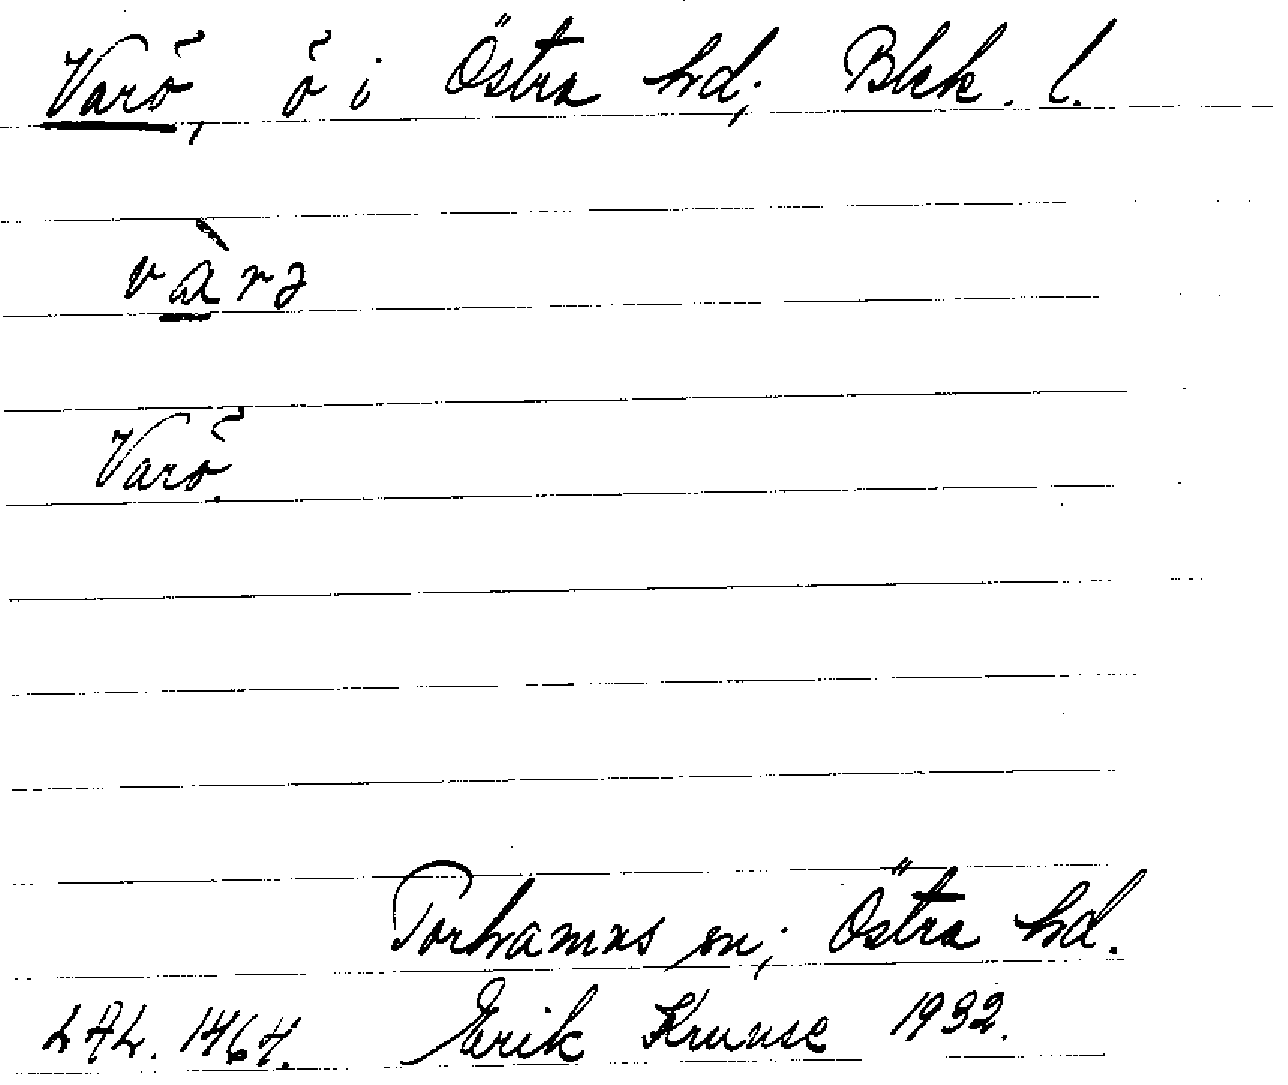 Varö, ö i Östra hd; Blek. l.
và̱rə
Varö.
Torhamns sn; Östra hd.
LAL. 1464. Erik Kruuse 1932.